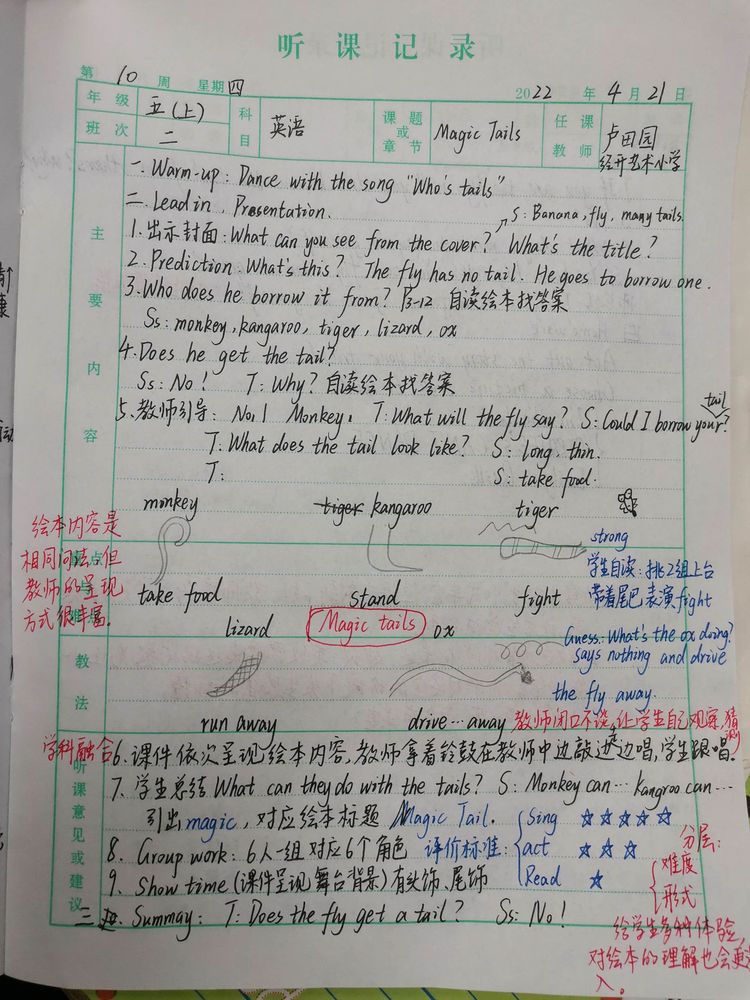 听课记录
第 10 周 星期 四 2022 年 4 月 21 日
年级 五(上) 科目 英语 课题或章节 Magic Tails 任课教师 卢田园
班次 二 经开艺术小学
主要内容
一. Warm-up: Dance with the song "Who's tails"
二. Lead in. Presentation.
S: Banana, fly, many tails.
1. 出示封面: What can you see from the cover? What's the title?
2. Prediction: What's this? The fly has no tail. He goes to borrow one.
3. Who does he borrow it from? P3-12 自读绘本找答案
Ss: monkey, kangaroo, tiger, lizard, ox
4. Does he get the tail?
Ss: No! T: Why? 自读绘本找答案
tail
5. 教师引导: No.1 Monkey. T: What will the fly say? S: Could I borrow your?
T: What does the tail look like? S: long, thin.
T: S: take food.
monkey tiger kangaroo tiger
绘本内容是
相同问法,但
教师的呈现
方式很丰富.
strong
学生自读: 挑2组上台
带着尾巴表演fight
take food stand fight
lizard Magic tails ox
Guess: What's the ox doing?
says nothing and drive
the fly away.
教法
run away drive…away 教师闭口不谈,让学生自己观察,猜测
学科融合
6. 课件依次呈现绘本内容,教师拿着铃鼓在教师中边敲边走边唱,学生跟唱.
听课意见或建议
7. 学生总结 What can they do with the tails? S: Monkey can… kangroo can…
引出magic, 对应绘本标题 Magic Tail.
8. Group work: 6人一组对应6个角色 评价标准:
Sing ☆☆☆☆☆
act ☆☆☆
Read ☆
9. Show time (课件呈现舞台背景) 有头饰、尾饰
分层:
难度
形式
三. Summay: T: Does the fly get a tail? Ss: No!
给学生多种体验,
对绘本的理解也会更
入。